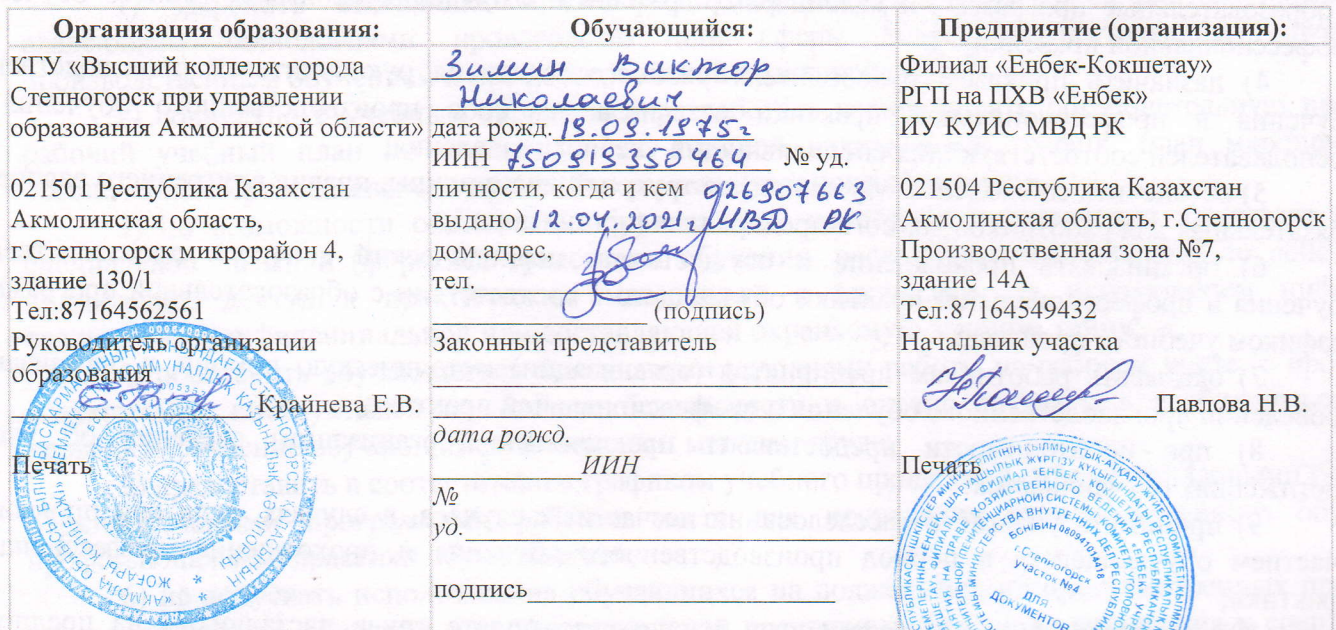 Организация образования:
КГУ «Высший колледж города
Степногорск при управлении
образования Акмолинской области»
021501 Республика Казахстан
Акмолинская область,
г. Степногорск микрорайон 4,
здание 130/1
Тел:87164562561
Руководитель организации
образования
Крайнева Е.В.
Печать
Обучающийся:
Зимин Виктор
Николаевич
дата рожд. 19.09.1975г
ИИН 750919350464 № уд.
личности, когда и кем 026907663
выдано) 12.04.2021г. МВД РК
дом.адрес
тел.
(подпись)
Законный представитель
дата рожд.
ИИН
№
уд.
подпись
Предприятие (организация):
Филиал «Енбек-Кокшетау»
РГП на ПХВ «Енбек»
ИУ КУИС МВД РК
021504 Республика Казахстан
Акмолинская область, г.Степногорск
Производственная зона №7,
здание 14А
Тел:87164549432
Начальник участка
Павлова Н.В.
Печать
БСН/БИН 080941014418
г.Степногорск
ДЛЯ
ДОКУМЕНТОВ